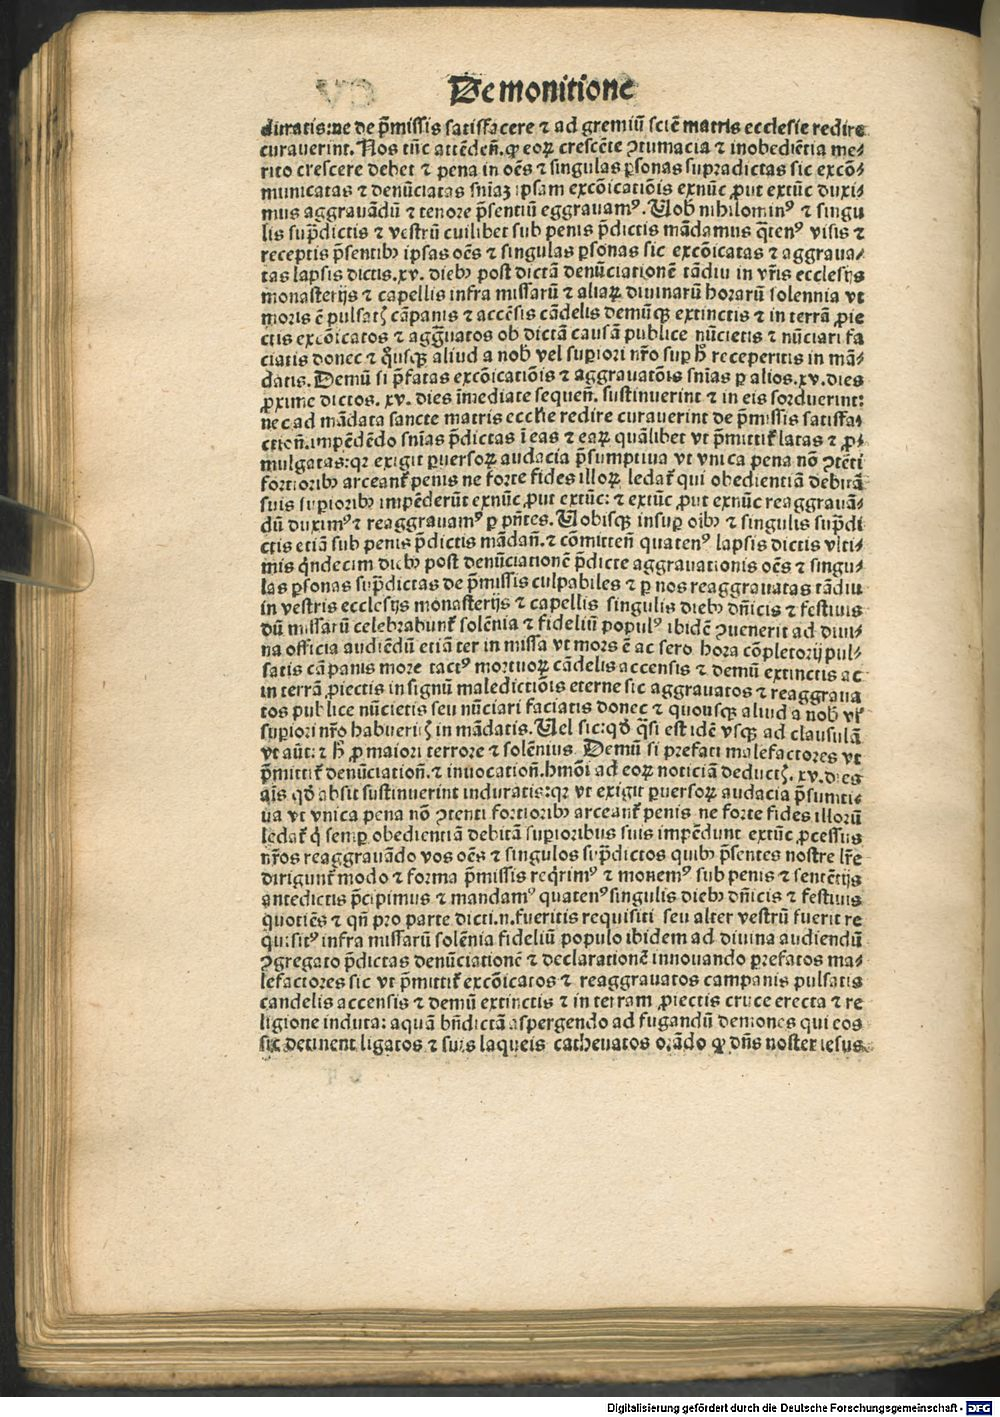 De monitione
duratis:ne de p̄missis satisfacere ⁊ ad gremiū sctē matris ecclesie redire
curauerint. Nos tūc attēdeñ. ꝙ eoꝝ crescēte ↄtumacia ⁊ inobediētia me⸗
rito crescere debet ⁊ pena in oēs ⁊ singulas ꝑsonas supradictas sic excō⸗
municatas ⁊ denūciatas snīaꝫ ipsam excōicatiōis exnūc ꝓut extūc duxi⸗
mus aggrauādū ⁊ tenore p̄sentiū eggrauamꝰ. Uob̄ nihilominꝰ ⁊ singu
lis sup̄dictis ⁊ vestrū cuilibet sub penis p̄dictis mādamus q̄tenꝰ visis ⁊
receptis p̄sentibꝫ ipsas oēs ⁊ singulas ꝑsonas sic excōicatas ⁊ aggraua⸗
tas lapsis dictis.xv. diebꝫ post dictā denūciationē tādiu in vr̄is ecclesijs
monasterijs ⁊ capellis infra missarū ⁊ aliaꝝ diuinarū horarū solennia vt
moris ē pulsatꝭ cāpanis ⁊ accēsis cādelis demūqꝫ extinctis ⁊ in terrā ꝓie
ctis excōicatos ⁊ agḡuatos ob dictā causā publice nūcietis ⁊ nūciari fa
ciatis donec ⁊ qͦusqꝫ aliud a nob̄ vel suꝑiori nr̄o suꝑ ħ receperitis in mā⸗
datis. Demū si p̄fatas excōicatiōis ⁊ aggrauatōis snīas ꝑ alios.xv.dies
ꝓxime dictos. xv. dies īmediate sequeñ. sustinuerint ⁊ in eis sorduerint:
nec ad mādata sancte matris ecclesie redire curauerint de p̄missis satisfa⸗
ctioñ.impēdēdo snīas p̄dictas ī eas ⁊ eaꝝ quālibet vt p̄mittiť latas ⁊ ꝓ⸗
mulgatas:qꝛ exigit ꝑuersoꝝ audacia p̄sumptiua vt vnica pena nō ↄtēti
fortioribꝫ arceanť penis ne forte fides illoꝝ ledať qui obedientiā debitā
suis suꝑioribꝫ impēderūt exnūc ꝓut extūc: ⁊ extūc ꝓut exnūc reaggrauā⸗
dū duximꝰ ⁊ reaggrauamꝰ ꝑ pn̄tes. Uobisqꝫ insuꝑ oībꝫ ⁊ singulis sup̄di
ctis etiā sub penis p̄dictis mādañ. ⁊ cōmitteñ quatenꝰ lapsis dictis vlti⸗
mis qͥndecim diebꝫ post denūciationē p̄dicte aggrauationis oēs ⁊ singu⸗
las ꝑsonas sup̄dictas de p̄missis culpabiles ⁊ ꝑ nos reaggrauatas tādiu
in vestris ecclesijs monasterijs ⁊ capellis singulis diebꝫ dn̄icis ⁊ festiuis
dū missarū celebrabunť solēnia ⁊ fideliū populꝰ ibidē ↄuenerit ad diui⸗
na officia audiēdū etiā ter in missa vt moris ē ac sero hora cōpletorij pul⸗
satis cāpanis more tactꝰ mortuoꝝ cādelis accensis ⁊ demū extinctis ac
in terrā ꝓiectis in signū maledictiōis eterne sic aggrauatos ⁊ reaggraua
tos publice nūcietis seu nūciari faciatis donec ⁊ quousqꝫ aliud a nob̄ vl̓
suꝑiori nr̄o habueritꝭ in mādatis. Uel sic:qđ q̄si est idē vsqꝫ ad clausulā
vt aūt: ⁊ ħ ꝓ maiori terrore ⁊ solēnius Demū si prefati malefactores vt
p̄mittiť denūciatioñ.⁊ inuocatioñ.hmōi ad eoꝝ noticiā deductꝭ. xv.dies
aīs qđ absit sustinuerint induratis:qꝛ vt exigit ꝑuersoꝝ audacia p̄sumti⸗
ua vt vnica pena nō ↄtenti fortioribꝫ arceanť penis ne forte fides illorū
ledať qͥ semꝑ obedientiā debitā suꝑioribus suis impēdunt extūc ꝓcessus
nr̄os reaggrauādo vos oēs ⁊ singulos sup̄dictos quibꝫ p̄sentes nostre lr̄e
dirigunť modo ⁊ forma p̄missis reqͥrimꝰ ⁊ monemꝰ sub penis ⁊ sentētijs
antedictis p̄cipimus ⁊ mandamꝰ quatenꝰ singulis diebꝫ dn̄icis ⁊ festiuis
quotiēs ⁊ qn̄ pro parte dicti.n.fueritis requisiti seu alter vestrū fuerit re
quisitꝰ infra missarū solēnia fideliū populo ibidem ad diuina audiendū
ↄgregato p̄dictas denūciationē ⁊ declarationē innouando ꝑrefatos ma⸗
lefactores sic vt p̄mittiť excōicatos ⁊ reaggrauatos campanis pulsatis
candelis accensis ⁊ demū extinctis ⁊ in terram ꝓiectis cruce erecta ⁊ re
ligione induta: aquā bn̄dictā aspergendo ad fugandū demones qui eos
sic detinent ligatos ⁊ suis laqueis cathenatos orādo ꝙ dn̄s noster iesus
Digitalisierung gefördert durch die Deutsche Forschungsgemeinschaft - DFG